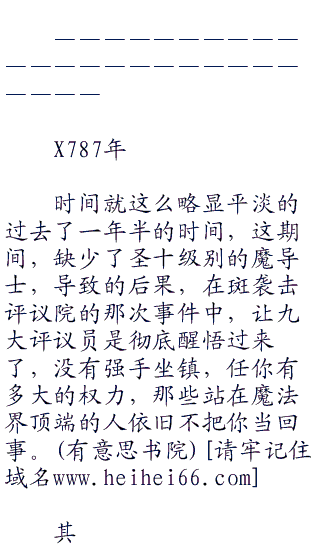 ——————————
————————————
————
X787年
时间就这么略显平淡的
过去了一年半的时间，这期
间，缺少了圣十级别的魔导
士，导致的后果，在斑袭击
评议院的那次事件中，让九
大评议员是彻底醒悟过来
了，没有强手坐镇，任你有
多大的权力，那些站在魔法
界顶端的人依旧不把你当回
事。(有意思书院)[请牢记住
域名www.heihei66.com]
其